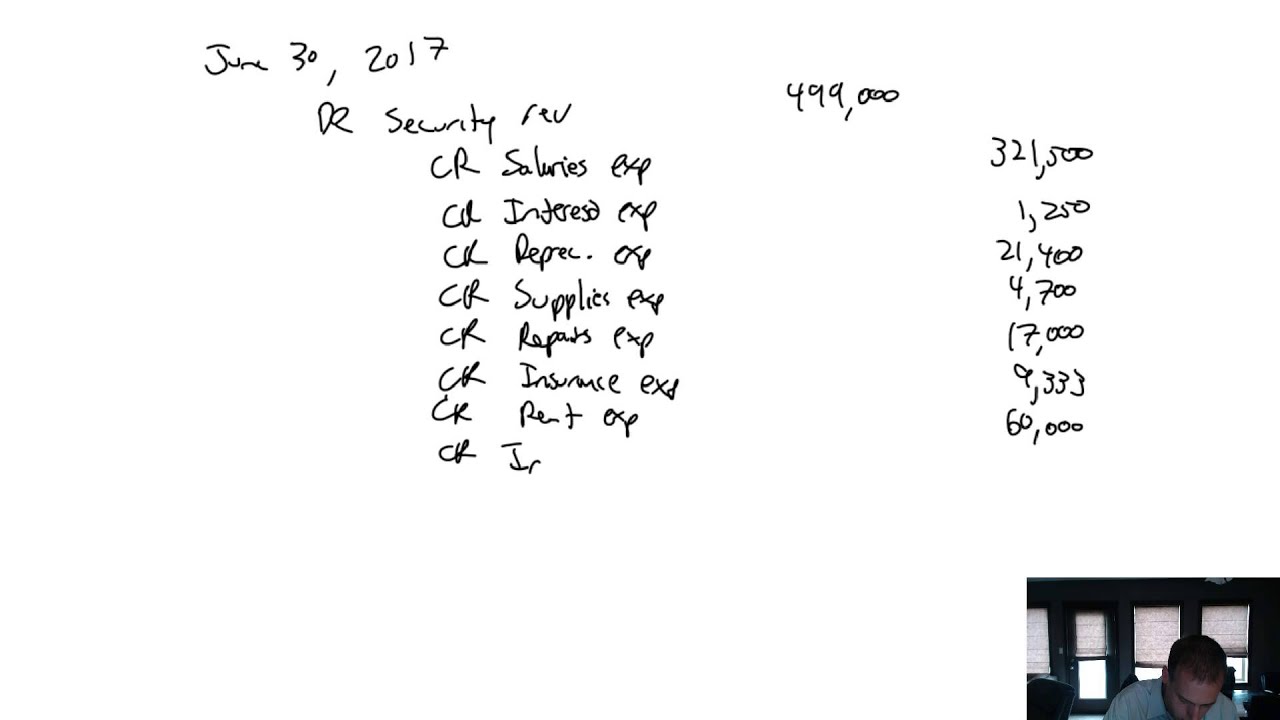 June 30, 2017
DR Security rev 499,000
CR Salaries exp 321,500
CR Interest exp 1,250
CR Deprec. exp 21,400
CR Supplies exp 4,700
CR Repairs exp 17,000
CR Insurance exp 9,333
CR Rent exp 60,000
CR In